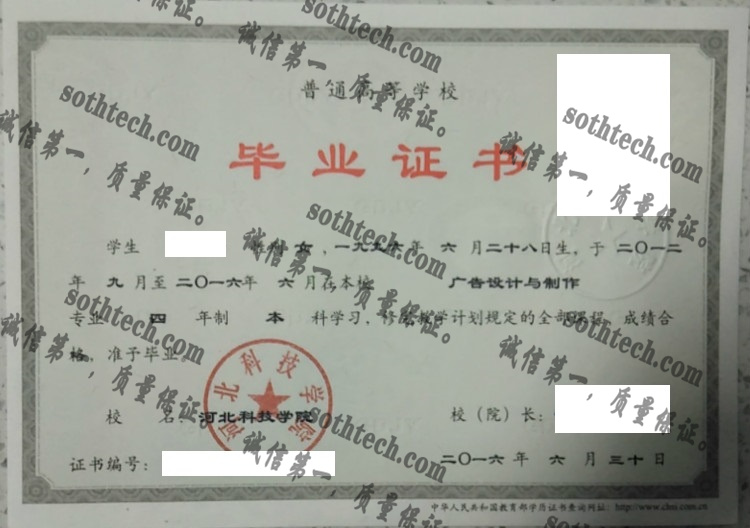 普通高等学校
毕业证书
学生 性别 女，一九九六年 六 月二十八日生，于 二〇一二
年 九 月至 二〇一六年 六 月在本校 广告设计与制作
专业 四 年制 本 科学习，修完教学计划规定的全部课程，成绩合
格，准予毕业。
河北科技学院
校 名：河北科技学院 校（院）长：
证书编号： 二〇一六 年 六 月 三十 日
中华人民共和国教育部学历证书查询网址：http://www.chsi.com.cn
sothtech.com
诚信第一，质量保证。
sothtech.com
诚信第一，质量保证。
sothtech.com
诚信第一，质量保证。
sothtech.com
诚信第一，质量保证。
sothtech.com
诚信第一，质量保证。
sothtech.com
诚信第一，质量保证。
sothtech.com
诚信第一，质量保证。
sothtech.com